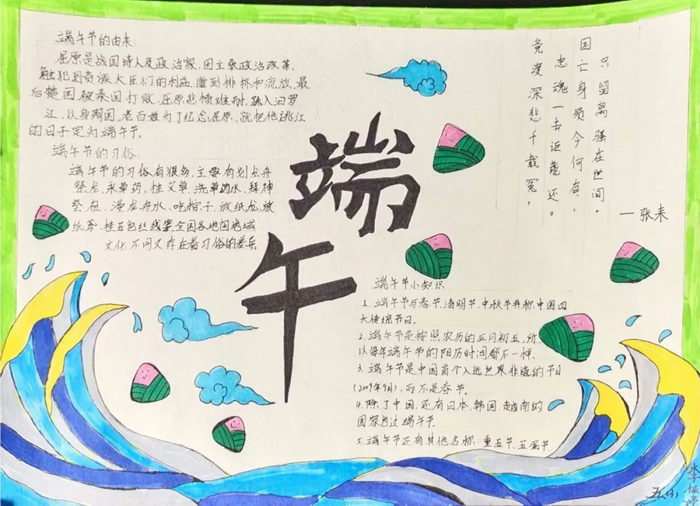 端午节的由来
屈原是战国诗人及政治家,因主张政治改革,
触犯到贵族大臣们的利益,遭到排挤和流放,最
后楚国被秦国打败,屈原悲愤难耐,跳入汨罗
江,以身殉国,老百姓为了纪念屈原,就把他跳江
的日子定为端午节。
端午节的习俗
端午节的习俗有很多,主要有划龙舟
祭龙、采草药、挂艾草、洗草药水、拜神
祭祖、浸龙舟水、吃粽子、放纸龙、放
纸鸢、拴五色丝线等,全国各地因地域
文化不同又存在着习俗的差异
端午
竞渡深悲千载冤,
忠魂一去讵能还。
国亡身殒今何有,
只留离骚在世间。
—张耒
端午节小知识
1.端午节与春节、清明节、中秋节并称中国四
大传统节日。
2.端午节是按照农历的五月初五,所
以每年端午节的阳历时间都不一样。
3.端午节是中国首个入选世界非遗的节日
(2009年9月),而不是春节。
4.除了中国,还有日本、韩国、越南的
国家也过端午节。
5.端午节还有其他名称:重五节、五蛋节
五(4)